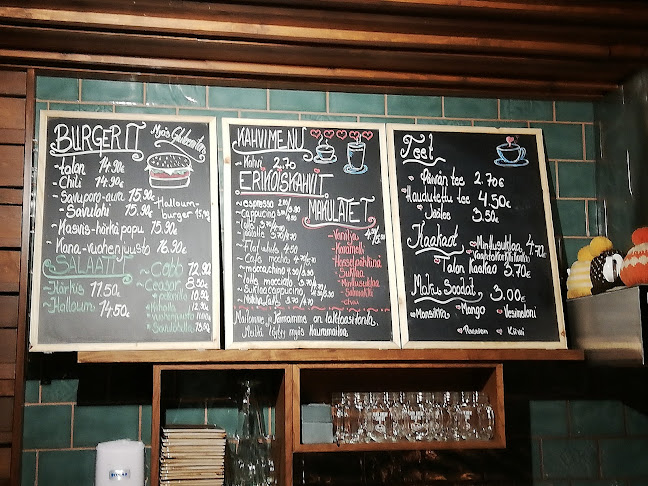 BURGERIT
Myös Gluteeniton
- talon 14.90€
- Chili 14.90€
- Savuporo-aura 15.90€
- Savulohi 15.90€
Halloum-
burger 15.90
- Kasvis-härkä papu 15.90€
- Kana-vuohenjuusto 16.90€
SALAATIT
- Härkis 11.50€
- Halloum 14.50€
- Cobb 12.90
- Ceasar 8.50€
KAHVIMENU
- Kahvi 2.70
ERIKOISKAHVIT
- espresso
- Cappucino
- Latte
- Flat white
- Cafe mocha
- moccacchino
- latte macchiato
- Suklaa cappucino
MAKULATET
- Vanilja
- Karamelli
- Hasselpähkinä
- Suklaa
- Minttusuklaa
- Salmiakki
- chai
Maitomme ja kermamme on laktoositonta.
Meiltä löytyy myös kauramaitoa
Teet
Päivän tee 2.70€
Haudutettu tee 4.50€
Jäätee 3.50€
Kaakaot
Minttusuklaa
4.70€
Talon kaakao 5.70€
Maku Soodat
3.00€
Mansikka
Mango
Vesimeloni
Passion
Kiivi